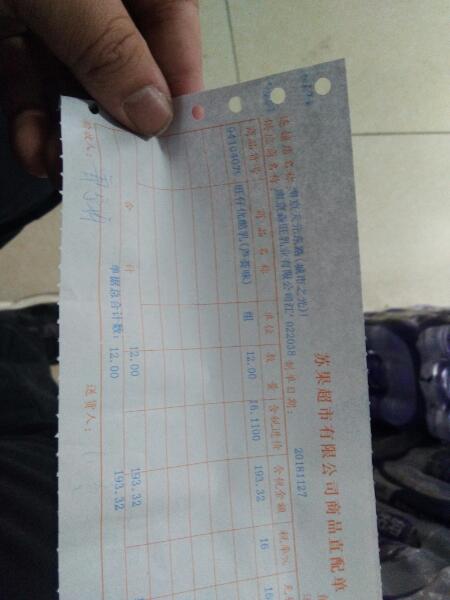 苏果超市有限公司商品直配单
连锁店名称 南京天元东路(城市之光)
供应商名称 南京森旺乳业有限公司江 022038 制单日期: 20181127
商品编号 商品名称 单位 数量 含税进价 含税金额 税率%
G4104075 旺仔优酪乳(芦荟味) 组 12.00 16.1100 193.32 16
合计 12.00 193.32
单据总合计数: 12.00 193.32
验收人: 送货人: